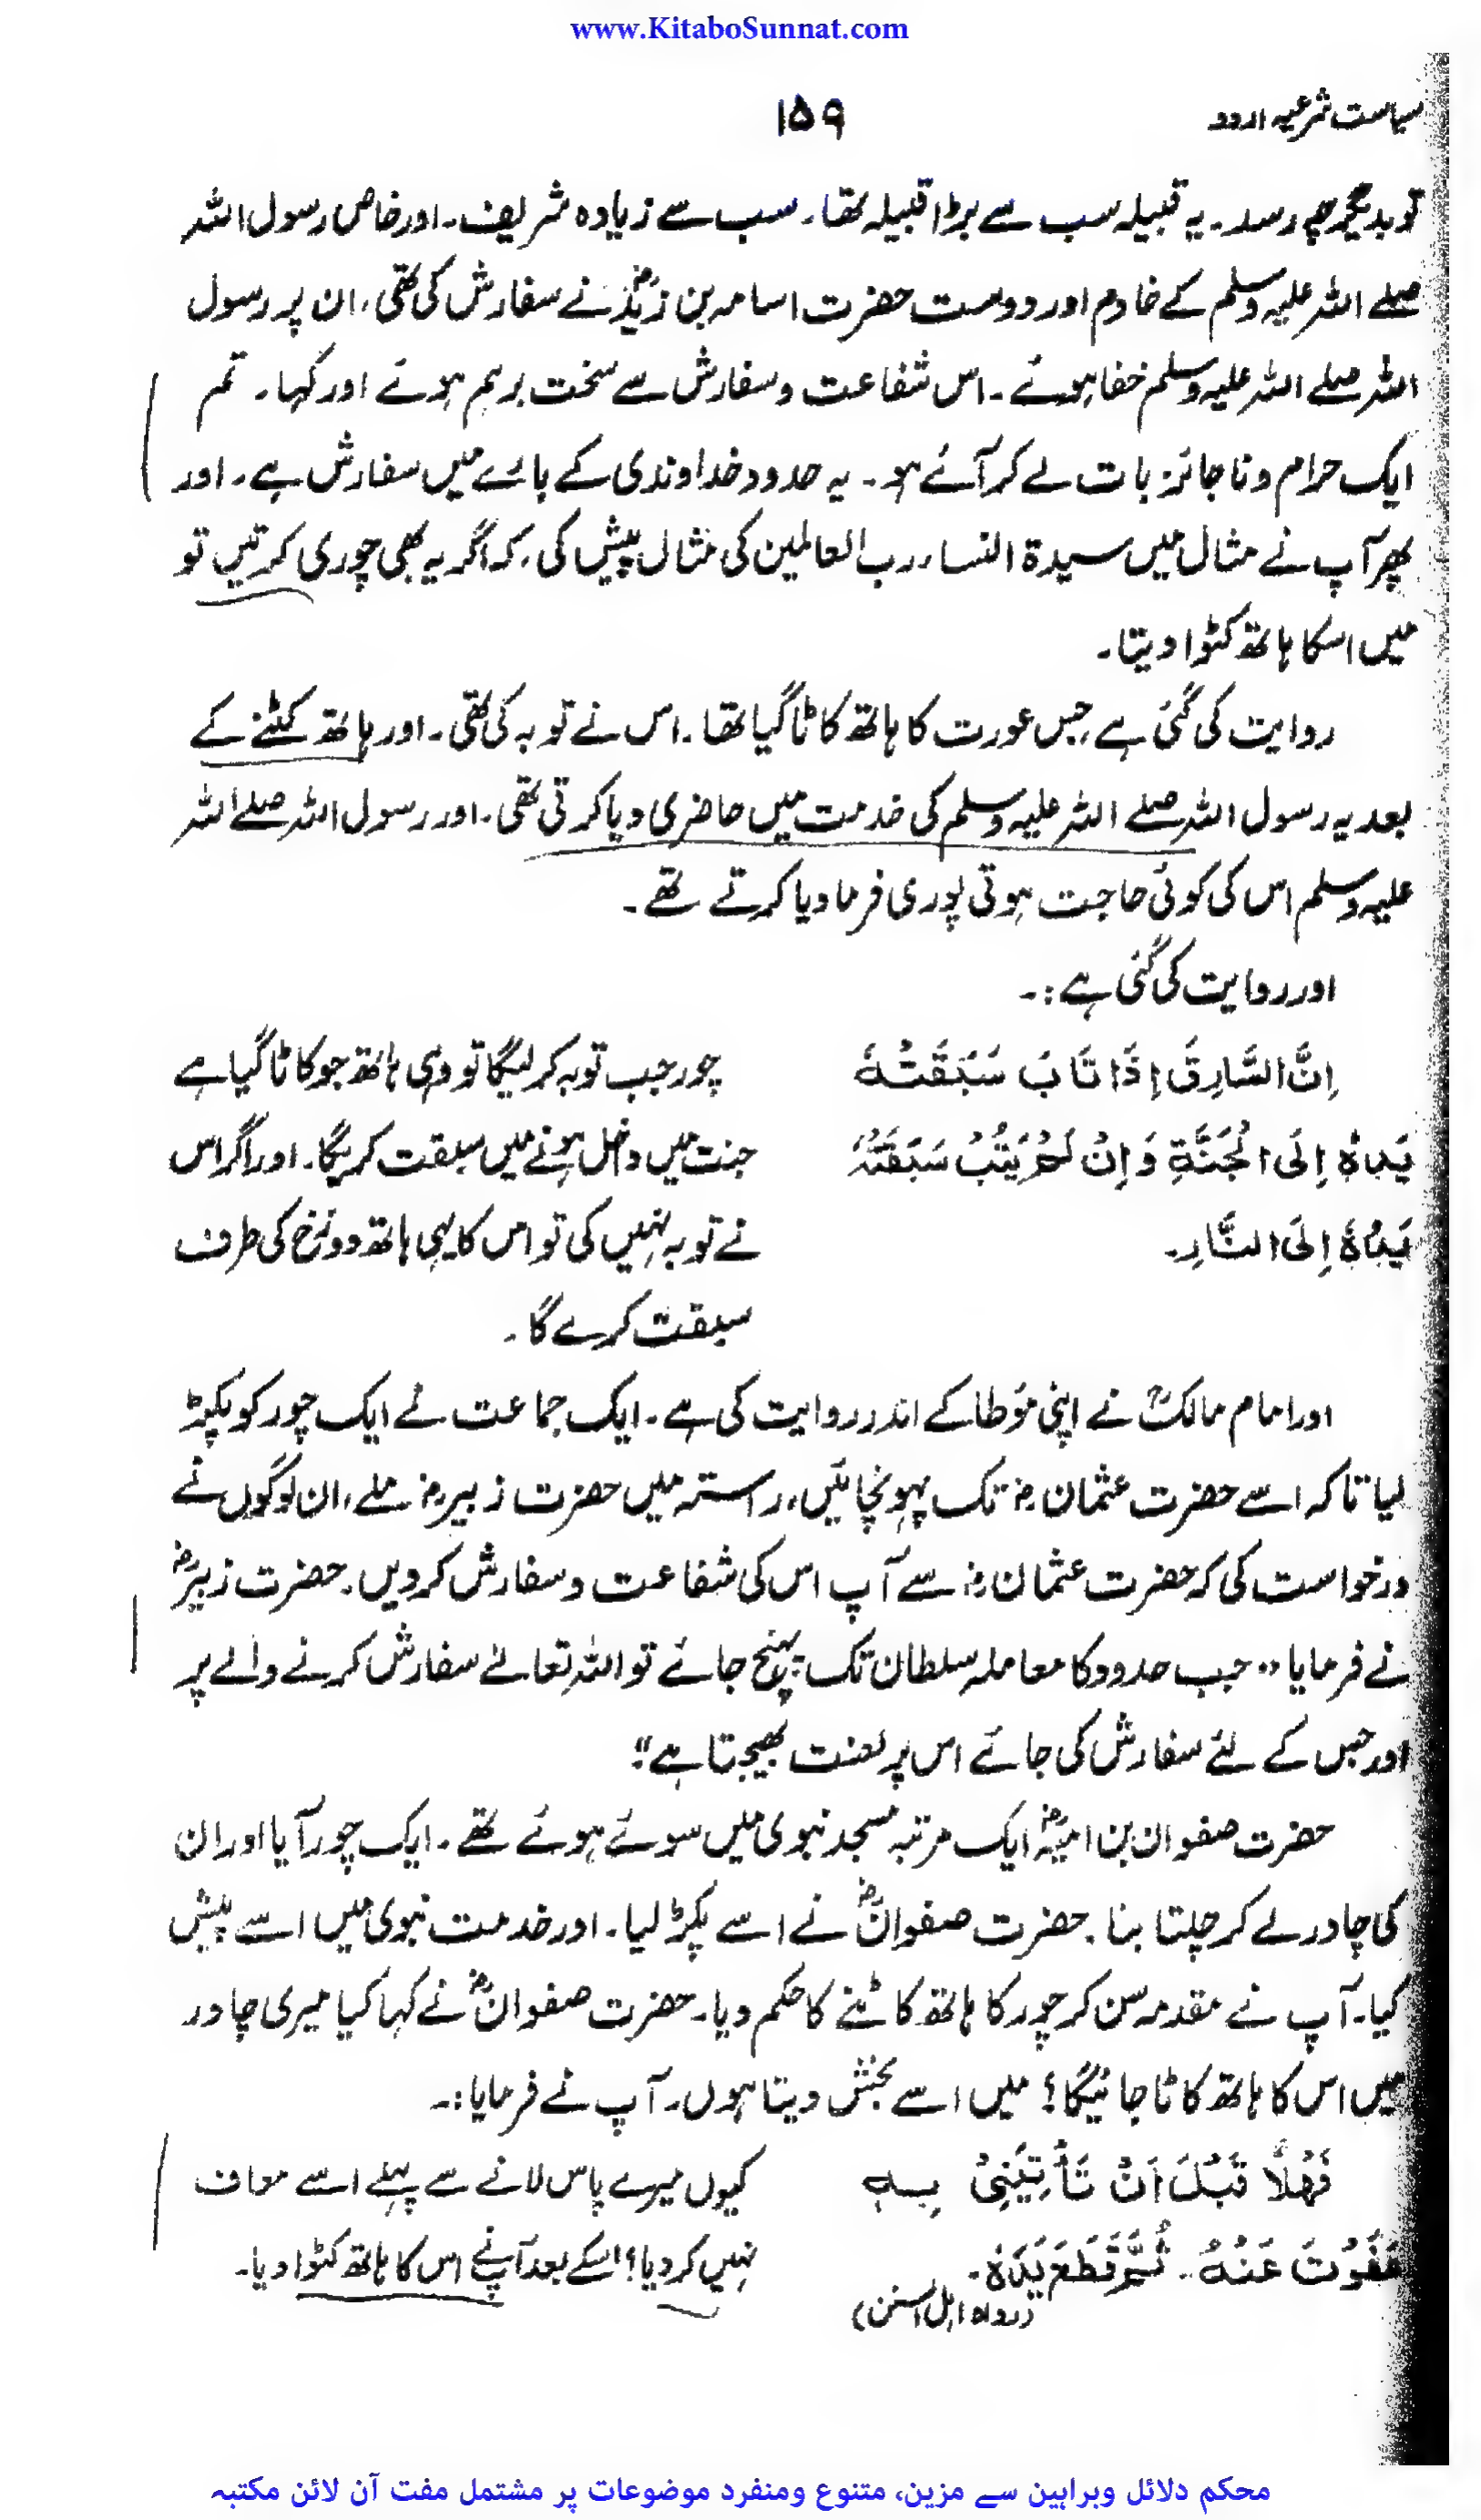 www.KitaboSunnat.com
سیاست شرعیہ اردو
۱۵۹
تو بدیگر چہ رسد۔ یہ قبیلہ سب سے بڑا قبیلہ تھا۔ سب سے زیادہ شریف۔ اور خاص رسول اللہ
صلے اللہ علیہ وسلم کے خادم اور دوست حضرت اسامہ بن زیدؓ نے سفارش کی تھی، ان پر رسول
اللہ صلے اللہ علیہ وسلم خفا ہوئے۔ اس شفاعت و سفارش سے سخت برہم ہوئے اور کہا۔ تم
ایک حرام و ناجائز بات لے کر آئے ہو۔ یہ حدود خداوندی کے بارے میں سفارش ہے۔ اور
پھر آپ نے مثال میں سیدۃ النساء رب العالمین کی مثال پیش کی، کہ اگر یہ بھی چوری کرتیں تو
میں اسکا ہاتھ کٹوا دیتا۔
روایت کی گئی ہے جس عورت کا ہاتھ کاٹا گیا تھا۔ اس نے توبہ کی تھی۔ اور ہاتھ کٹنے کے
بعد یہ رسول اللہ صلے اللہ علیہ وسلم کی خدمت میں حاضری دیا کرتی تھی۔ اور رسول اللہ صلے اللہ
علیہ وسلم اس کی کوئی حاجت ہوتی پوری فرما دیا کرتے تھے۔
اور روایت کی گئی ہے:۔
اِنَّ السَّارِقَ اِذَا تَابَ سَبَقَتْهُ
یَدُهٗ اِلَی الْجَنَّةِ وَاِنْ لَمْ یَتُبْ سَبَقَتْهُ
یَدُهٗ اِلَی النَّارِ۔
چور جب توبہ کرلیگا تو وہی ہاتھ جو کاٹا گیا ہے
جنت میں داخل ہونے میں سبقت کریگا۔ اور اگر اس
نے توبہ نہیں کی تو اس کا یہی ہاتھ دوزخ کی طرف
سبقت کرے گا۔
اور امام مالکؒ نے اپنی مؤطا کے اندر روایت کی ہے۔ ایک جماعت نے ایک چور کو پکڑ
لیا تاکہ اسے حضرت عثمان رض تک پہونچائیں، راستہ میں حضرت زبیر رض ملے، ان لوگوں نے
درخواست کی کہ حضرت عثمان رض سے آپ اس کی شفاعت و سفارش کر دیں۔ حضرت زبیرؓ
نے فرمایا "جب حدود کا معاملہ سلطان تک پہنچ جائے تو اللہ تعالےٰ سفارش کرنے والے پر
اور جس کے لئے سفارش کی جائے اس پر لعنت بھیجتا ہے"
حضرت صفوان بن امیہؓ ایک مرتبہ مسجد نبوی میں سوئے ہوئے تھے۔ ایک چور آیا اور ان
کی چادر لے کر چلتا بنا۔ حضرت صفوانؓ نے اسے پکڑ لیا۔ اور خدمت نبوی میں اسے پیش
کیا۔ آپ نے مقدمہ سن کر چور کا ہاتھ کاٹنے کا حکم دیا۔ حضرت صفوانؓ نے کہا کیا میری چادر
میں اس کا ہاتھ کاٹا جائیگا؟ میں اسے بخش دیتا ہوں۔ آپ نے فرمایا:۔
فَهَلَّا قَبْلَ اَنْ تَأْتِیَنِیْ بِهٖ
عَفَوْتَ عَنْهُ۔ ثُمَّ قَطَعَ یَدَهٗ۔
(رواہ اہل السنن)
کیوں میرے پاس لانے سے پہلے اسے معاف
نہیں کر دیا؟ اسکے بعد آپنے اس کا ہاتھ کٹوا دیا۔
محکم دلائل وبراہین سے مزین، متنوع ومنفرد موضوعات پر مشتمل مفت آن لائن مکتبہ